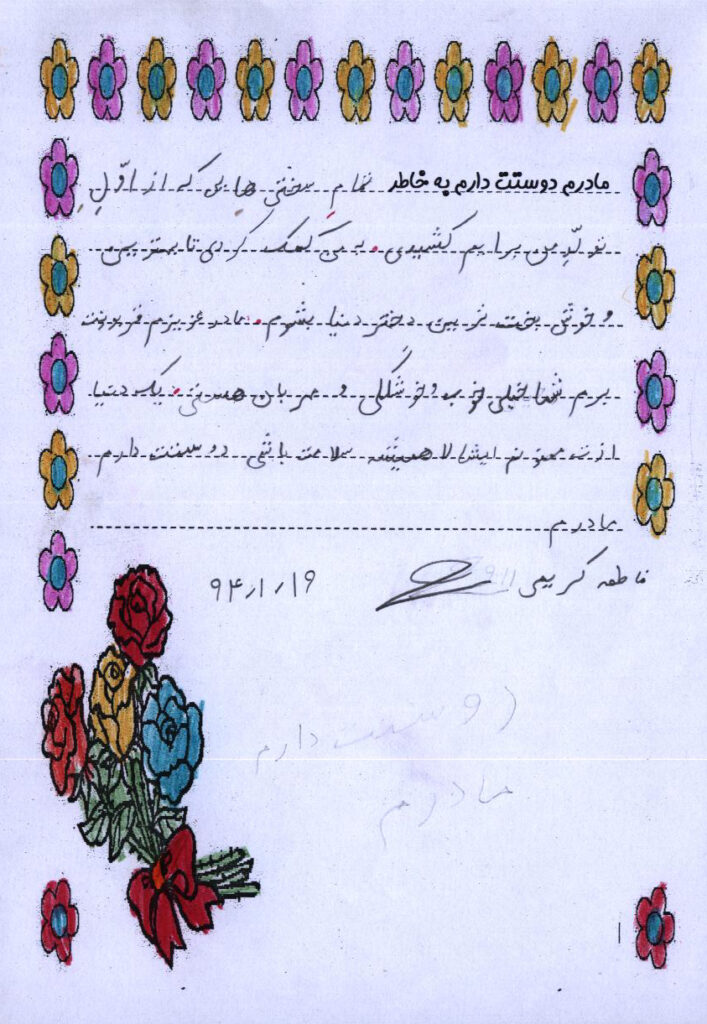 مادرم دوستت دارم به خاطر تمام سختی هایی که از اوّلِ
تولّدِ من برایم کشیدی. به من کمک کردی تا بهترین
و خوش بخت ترین دختر دنیا بشوم. مادر عزیزم قربونت
برم شما خیلی خوب و خوشگلی و مهربان هستی. یک دنیا
ازت ممنونم ایشالا همیشه سلامت باشی دوستت دارم
مادرم
فاطمه کریمی
94/1/19
دوستت دارم
مادرم